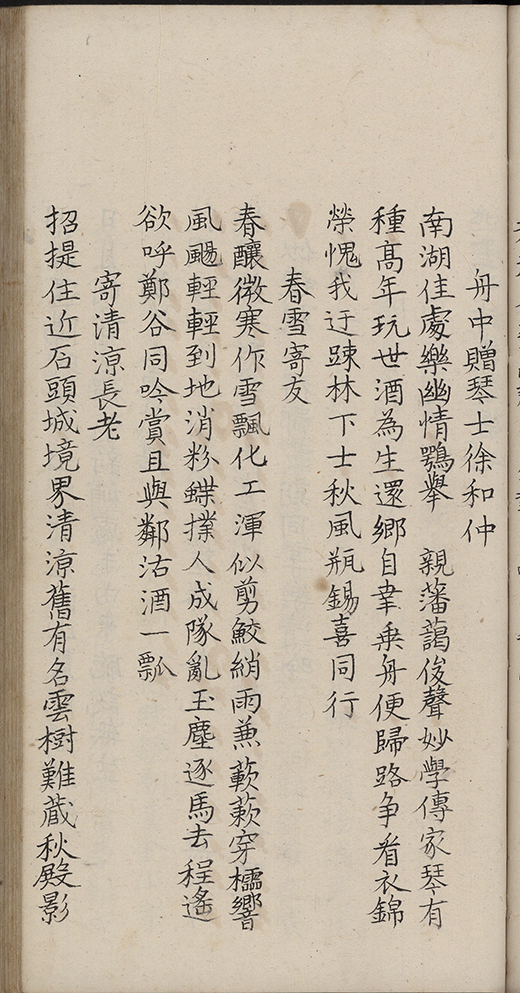 舟中贈琴士徐和仲
南湖佳處樂幽情鶚舉　親藩藹俊聲妙學傳家琴有
種高年玩世酒為生還鄉自幸乗舟便歸路争看衣錦
榮愧我迂踈林下士秋風瓶錫喜同行
春雪寄友
春釀微寒作雪飄化工渾似剪鮫綃雨兼蔌蔌穿櫺響
風颺輕輕到地消粉蝶撲人成隊亂玉塵逐馬去程遙
欲呼鄭谷同吟賞且與鄰沽酒一瓢
寄清涼長老
招提住近石頭城境界清涼舊有名雲樹難蔵秋殿影